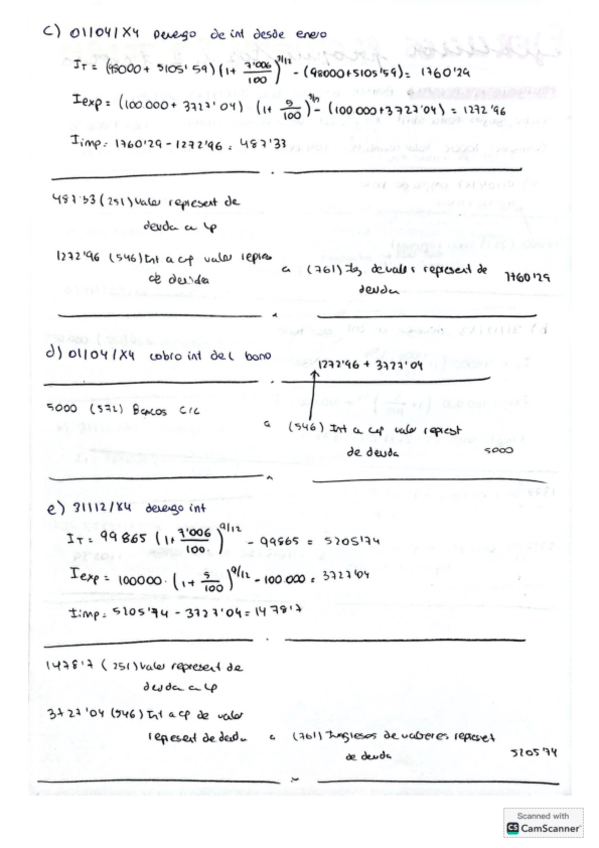 c) 01/04/X4 Devengo de int desde enero
IT = (98000 + 5105'59) (1+ 7'006/100)^3/12 - (98000+5105'59) = 1760'29
Iexp = (100.000 + 3727'04) (1 + 5/100)^3/12 - (100.000+3727'04) = 1272'96
Iimp = 1760'29 - 1272'96 = 487'33
487'33 (251) Valor represent de
deuda a lp
1272'96 (546) Int a cp valor repres
de deuda
a (761) Ing de valor represent de
deuda
1760'29
d) 01/04/X4 cobro int del bono
1272'96 + 3727'04
5000 (572) Bancos C/C
a (546) Int a cp valor represt
de deuda
5000
e) 31/12/X4 devengo int
IT = 99865 (1+ 7'006/100)^9/12 - 99865 = 5205'74
Iexp = 100000 · (1+ 5/100)^9/12 - 100.000 = 3727'04
Iimp = 5205'74 - 3727'04 = 1478'7
1478'7 (251) Valor represent de
deuda a lp
3727'04 (546) Int a cp de valor
represent de deuda
a (761) Ingresos de valores represet
de deuda
5205'74
Scanned with
CS CamScanner